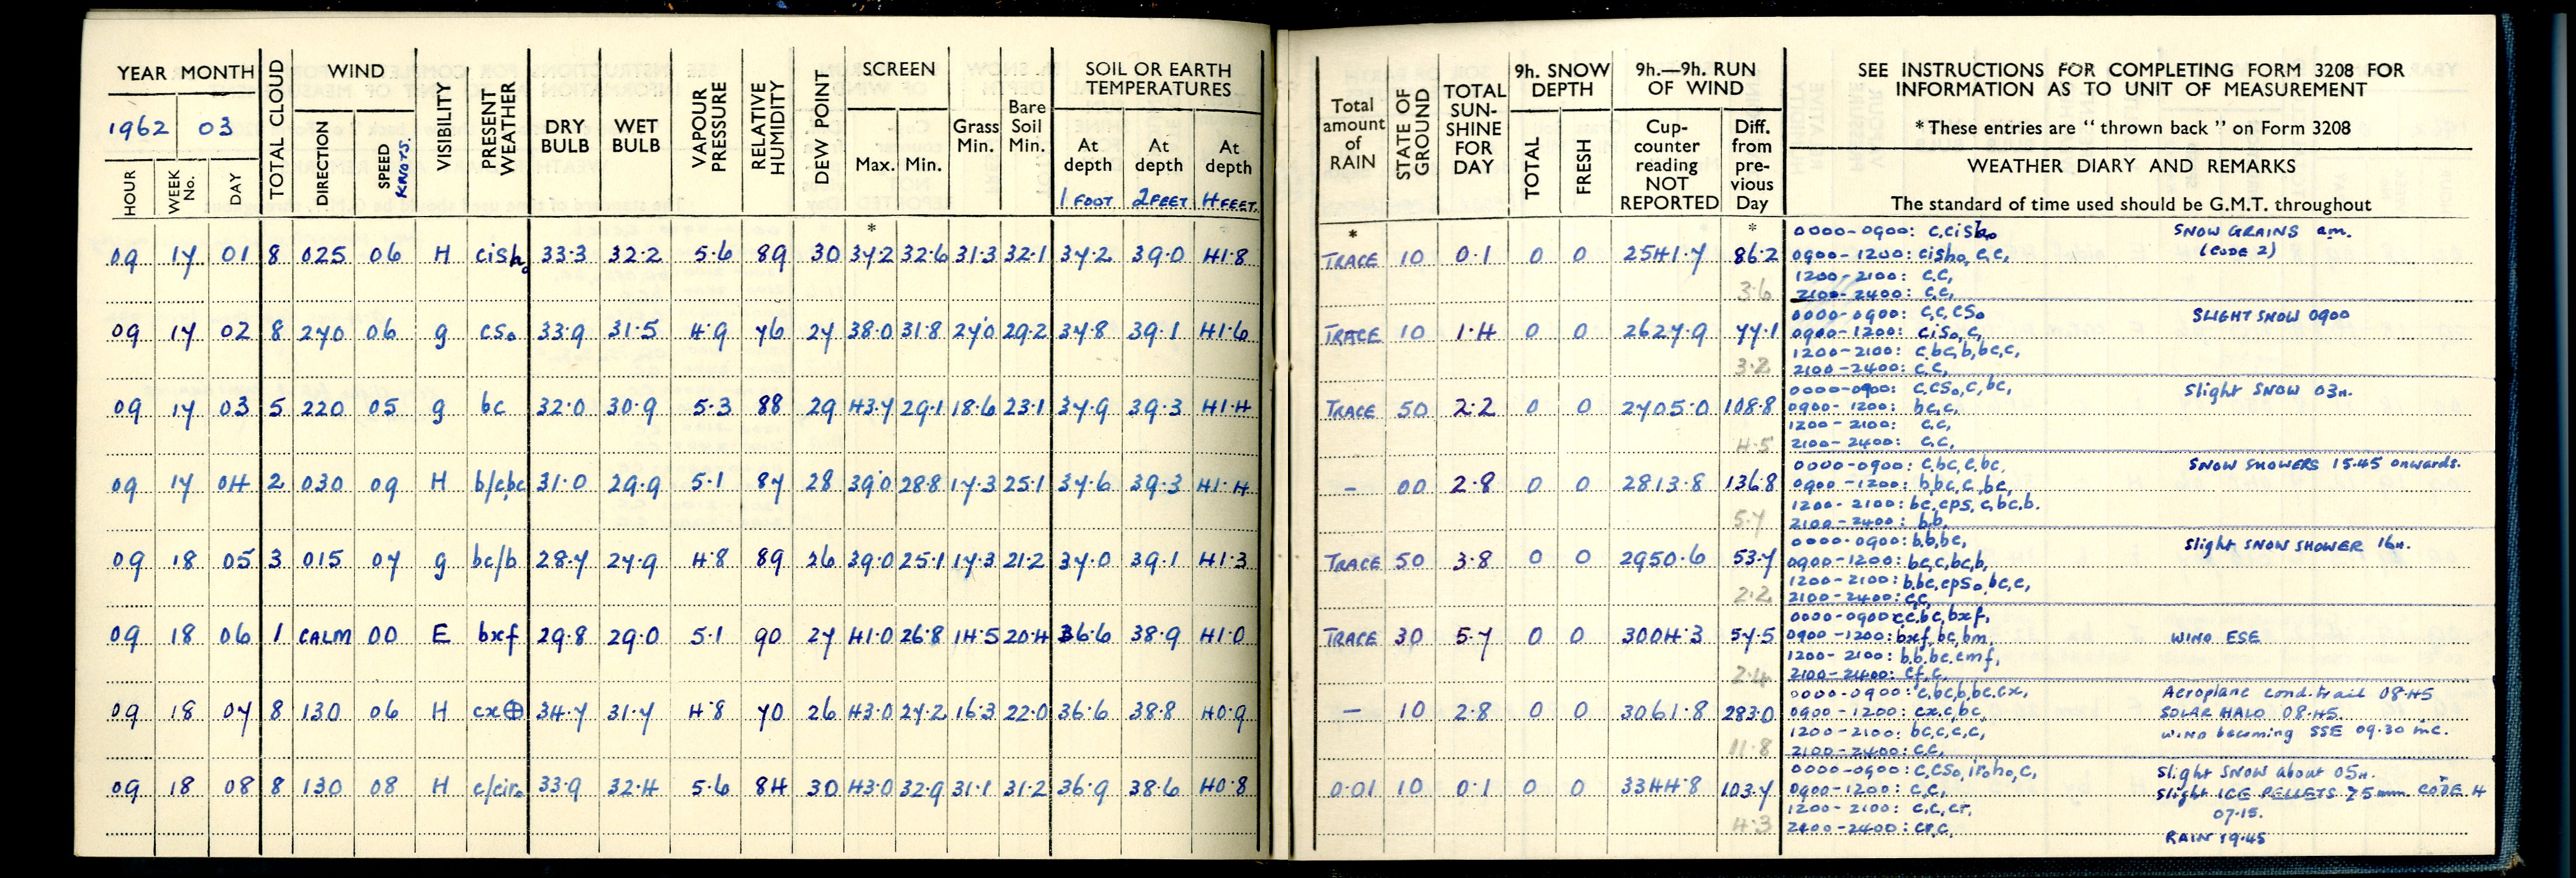 YEAR MONTH TOTAL CLOUD WIND VISIBILITY PRESENT WEATHER DRY BULB WET BULB VAPOUR PRESSURE RELATIVE HUMIDITY DEW POINT SCREEN Grass Min. Bare Soil Min. SOIL OR EARTH TEMPERATURES
1962 03 DIRECTION SPEED KNOTS. Max. Min. At depth At depth At depth
HOUR WEEK No. DAY 1 FOOT 2 FEET 4 FEET.
*
09 17 01 8 025 06 4 cish₀ 33.3 32.2 5.6 89 30 37.2 32.6 31.3 32.1 37.2 39.0 41.8
09 17 02 8 270 06 g cs₀ 33.9 31.5 4.9 76 27 38.0 31.8 27.0 29.2 37.8 39.1 41.6
09 17 03 5 220 05 g bc 32.0 30.9 5.3 88 29 43.7 29.1 18.6 23.1 37.9 39.3 41.4
09 17 04 2 030 09 4 b/cbc 31.0 29.9 5.1 87 28 39.0 28.8 17.3 25.1 37.6 39.3 41.4
09 18 05 3 015 07 g bc/b 28.7 27.9 4.8 89 26 39.0 25.1 17.3 21.2 37.0 39.1 41.3
09 18 06 1 CALM 00 E bxf 29.8 29.0 5.1 90 27 41.0 26.8 14.5 20.4 36.6 38.9 41.0
09 18 07 8 130 06 4 cx⊕ 34.7 31.7 4.8 70 26 43.0 27.2 16.3 22.0 36.6 38.8 40.9
09 18 08 8 130 08 4 c/cir₀ 33.9 32.4 5.6 84 30 43.0 32.9 31.1 31.2 36.9 38.6 40.8
Total amount of RAIN STATE OF GROUND TOTAL SUN-SHINE FOR DAY 9h. SNOW DEPTH 9h.—9h. RUN OF WIND
TOTAL FRESH Cup-counter reading NOT REPORTED Diff. from pre-vious Day
SEE INSTRUCTIONS FOR COMPLETING FORM 3208 FOR
INFORMATION AS TO UNIT OF MEASUREMENT
* These entries are "thrown back" on Form 3208
WEATHER DIARY AND REMARKS
The standard of time used should be G.M.T. throughout
* *
TRACE 10 0.1 0 0 2541.7 86.2
3.6
0000-0900: c,cish₀ SNOW GRAINS am.
0900-1200: cish₀, c,c, (CODE 2)
1200-2100: c,c,
2100-2400: c,c,
TRACE 10 1.4 0 0 2627.9 77.1
3.2
0000-0900: c,c,cs₀ SLIGHT SNOW 0900
0900-1200: cis₀,c,
1200-2100: c,bc,b,bc,c,
2100-2400: c,c,
TRACE 50 2.2 0 0 2705.0 108.8
4.5
0000-0900: c,cs₀,c,bc, Slight SNOW 03h.
0900-1200: bc,c,
1200-2100: c,c,
2100-2400: c,c,
- 00 2.8 0 0 2813.8 136.8
5.7
0000-0900: c,bc,c,bc, SNOW SHOWERS 15.45 onwards.
0900-1200: b,bc,c,bc,
1200-2100: bc,cps,c,bc,b.
2100-2400: b,b,
TRACE 50 3.8 0 0 2950.6 53.7
2.2
0000-0900: b,b,bc, Slight SNOW SHOWER 16h.
0900-1200: bc,c,bc,b,
1200-2100: b,bc,cps₀,bc,c,
2100-2400: c,c,
TRACE 30 5.7 0 0 3004.3 57.5
2.4
0000-0900: c,c,bc,bxf,
0900-1200: bxf,bc,bm, WIND ESE
1200-2100: b,b,bc,cmf,
2100-2400: cf,c,
- 10 2.8 0 0 3061.8 283.0
11.8
0000-0900: c,bc,b,bc,cx, Aeroplane cond. trail 08.45
0900-1200: cx,c,bc, SOLAR HALO 08.45.
1200-2100: bc,c,c,c, WIND becoming SSE 09.30 inc.
2100-2400: c,c,
0.01 10 0.1 0 0 3344.8 103.7
4.3
0000-0900: c,cs₀,ir₀h₀,c, Slight SNOW about 05h.
0900-1200: c,c, Slight ICE PELLETS 25mm CODE 4
1200-2100: c,c,cr, 07.15.
2400-2400: cr,c, RAIN 19.45